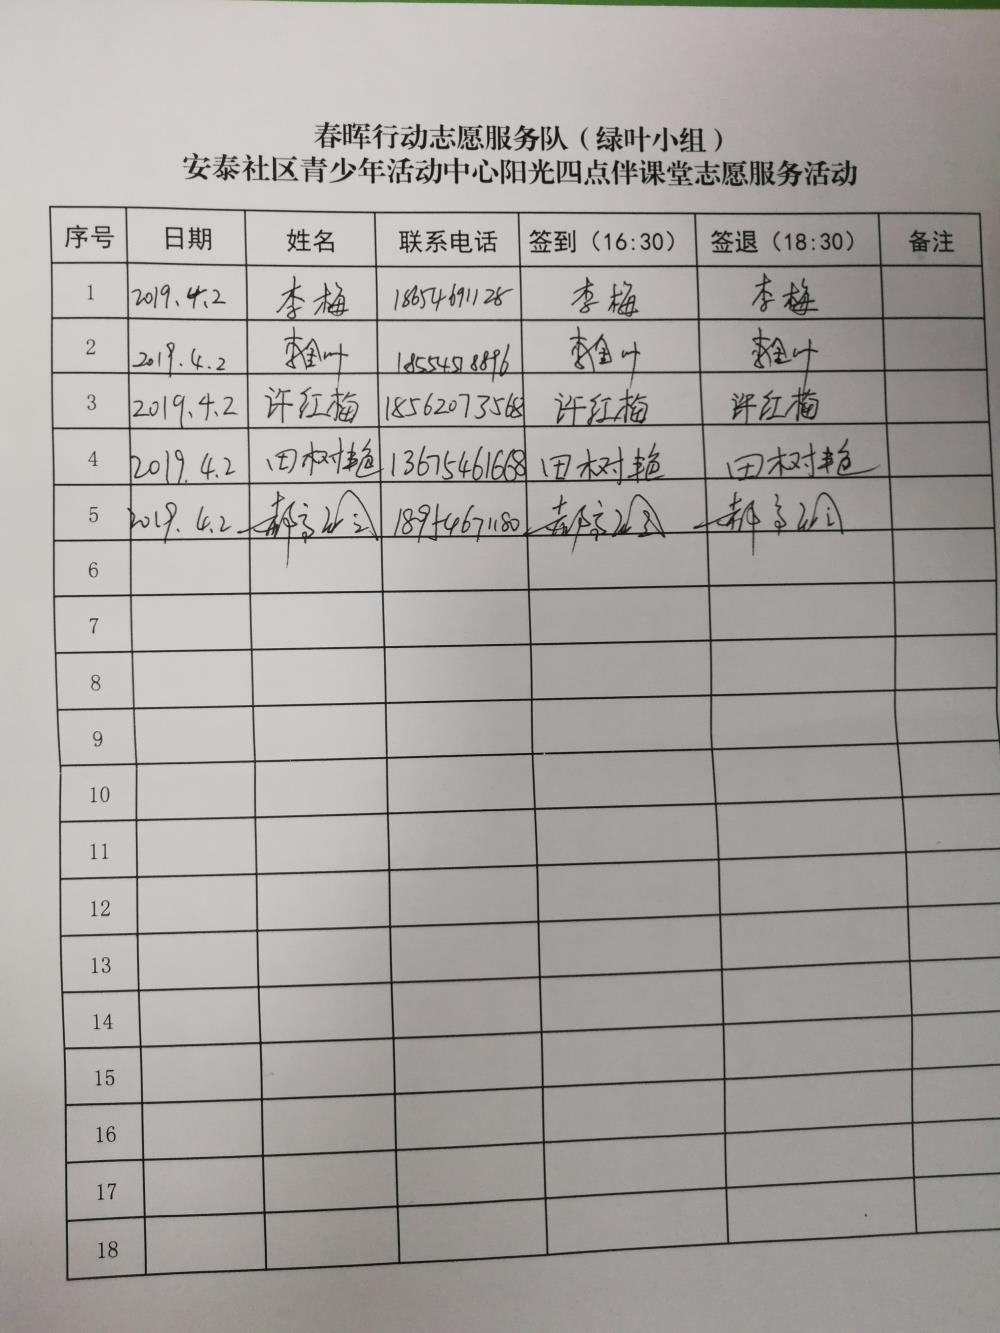 春晖行动志愿服务队（绿叶小组）
安泰社区青少年活动中心阳光四点伴课堂志愿服务活动
序号 日期 姓名 联系电话 签到（16:30） 签退（18:30） 备注
1 2019.4.2 李梅 18654691128 李梅 李梅
2 2019.4.2 18554518896
3 2019.4.2 许红梅 18562073568 许红梅 许红梅
4 2019.4.2 田树艳 13675461668 田树艳 田树艳
5 2019.4.2 18954671180
6
7
8
9
10
11
12
13
14
15
16
17
18